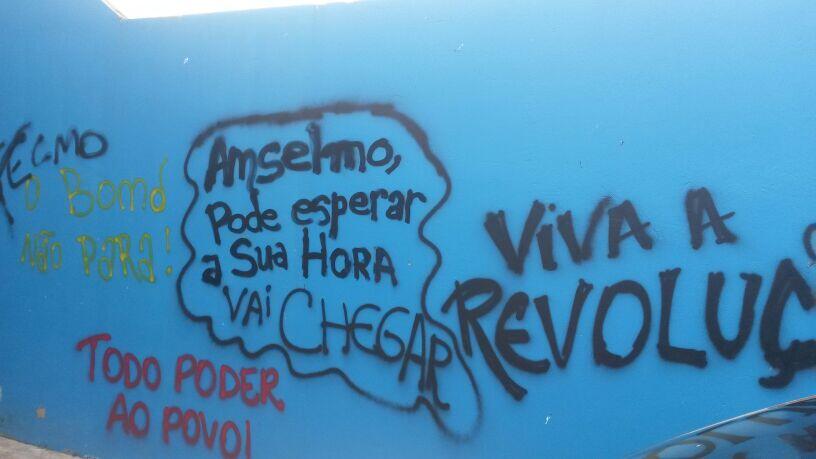 O BOMÓ
NÃO PARA!
Amselmo,
Pode esperar
a Sua HORA
VAi CHEGAR
ViVA A
REVOLUÇ
TODO PODER
AO POVO!